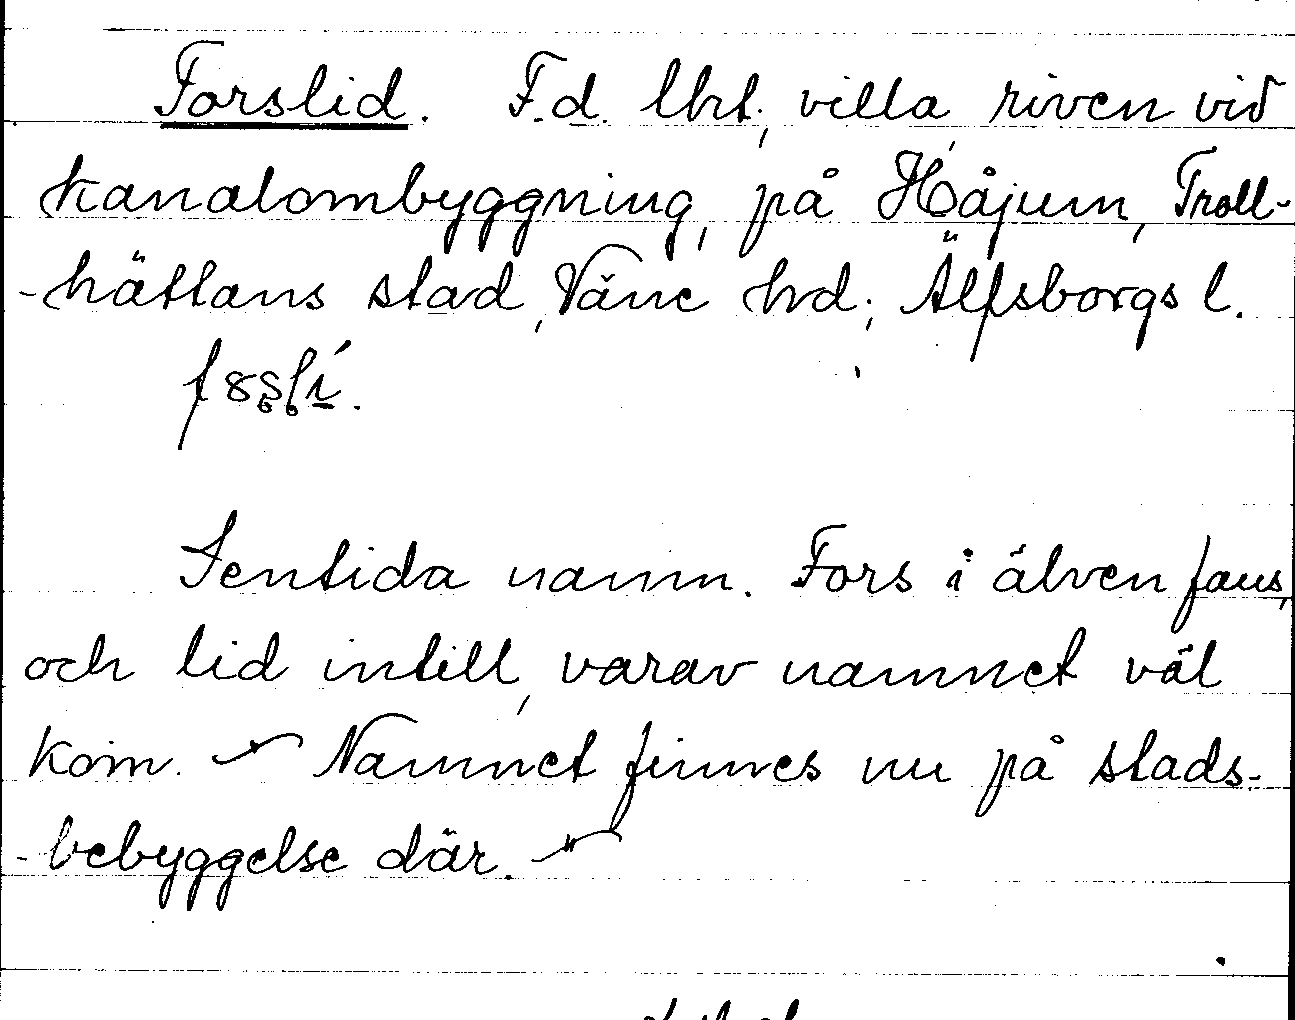 Forslid. F.d. lht, villa riven vid
kanalombyggning, på Håjum, Troll-
-hättans stad, Väne hd, Älfsborgs l.
Sentida namn. Fors i älven fans,
och lid intill, varav namnet väl
kom. Namnet finnes nu på stads-
-bebyggelse där.